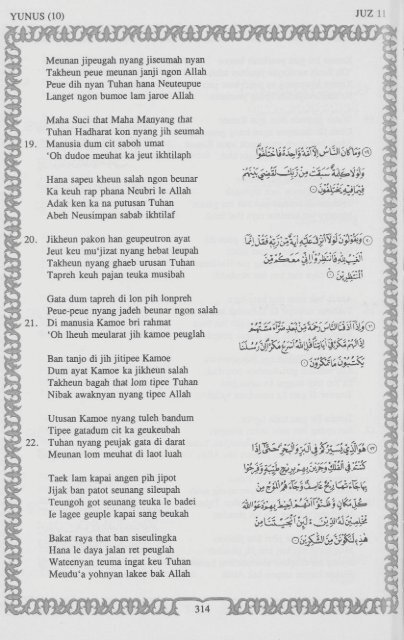 YUNUS (10)
JUZ 11
Meunan jipeugah nyang jiseumah nyan
Takheun peue meunan janji ngon Allah
Peue dih nyan Tuhan hana Neuteupue
Langet ngon bumoe lam jaroe Allah
Maha Suci that Maha Manyang that
Tuhan Hadharat kon nyang jih seumah
19. Manusia dum cit saboh umat
‘Oh dudoe meuhat ka jeut ikhtilaph
Hana sapeu kheun salah ngon beunar
Ka keuh rap phana Neubri le Allah
Adak ken ka na putusan Tuhan
Abeh Neusimpan sabab ikhtilaf
وَمَا كَانَ النَّاسُ إِلَّا أُمَّةً وَاحِدَةً فَاخْتَلَفُوا
وَلَوْلَا كَلِمَةٌ سَبَقَتْ مِنْ رَبِّكَ لَقُضِيَ بَيْنَهُمْ
فِيمَا فِيهِ يَخْتَلِفُونَ
20. Jikheun pakon han geupeutron ayat
Jeut keu mu’jizat nyang hebat leupah
Takheun nyang ghaeb urusan Tuhan
Tapreh keuh pajan teuka musibah
Gata dum tapreh di lon pih lonpreh
Peue-peue nyang jadeh beunar ngon salah
وَيَقُولُونَ لَوْلَا أُنْزِلَ عَلَيْهِ آيَةٌ مِنْ رَبِّهِ فَقُلْ إِنَّمَا
الْغَيْبُ لِلَّهِ فَانْتَظِرُوا إِنِّي مَعَكُمْ مِنَ
الْمُنْتَظِرِينَ
21. Di manusia Kamoe bri rahmat
‘Oh lheuh meularat jih kamoe peuglah
Ban tanjo di jih jitipee Kamoe
Dum ayat Kamoe ka jikheun salah
Takheun bagah that lom tipee Tuhan
Nibak awaknyan nyang tipee Allah
Utusan Kamoe nyang tuleh bandum
Tipee gatadum cit ka geukeubah
وَإِذَا أَذَقْنَا النَّاسَ رَحْمَةً مِنْ بَعْدِ ضَرَّاءَ مَسَّتْهُمْ
إِذَا لَهُمْ مَكْرٌ فِي آيَاتِنَا قُلِ اللَّهُ أَسْرَعُ مَكْرًا إِنَّ رُسُلَنَا
يَكْتُبُونَ مَا تَمْكُرُونَ
22. Tuhan nyang peujak gata di darat
Meunan lom meuhat di laot luah
Taek lam kapai angen pih jipot
Jijak ban patot seunang sileupah
Teungoh got seunang teuka le badei
Ie lagee geuple kapai sang beukah
Bakat raya that ban siseulingka
Hana le daya jalan ret peuglah
Wateenyan teuma ingat keu Tuhan
Meudu‘a yohnyan lakee bak Allah
هُوَ الَّذِي يُسَيِّرُكُمْ فِي الْبَرِّ وَالْبَحْرِ حَتَّى إِذَا
كُنْتُمْ فِي الْفُلْكِ وَجَرَيْنَ بِهِمْ بِرِيحٍ طَيِّبَةٍ وَفَرِحُوا
بِهَا جَاءَتْهَا رِيحٌ عَاصِفٌ وَجَاءَهُمُ الْمَوْجُ مِنْ
كُلِّ مَكَانٍ وَظَنُّوا أَنَّهُمْ أُحِيطَ بِهِمْ دَعَوُا اللَّهَ
مُخْلِصِينَ لَهُ الدِّينَ لَئِنْ أَنْجَيْتَنَا مِنْ
هَذِهِ لَنَكُونَنَّ مِنَ الشَّاكِرِينَ
314